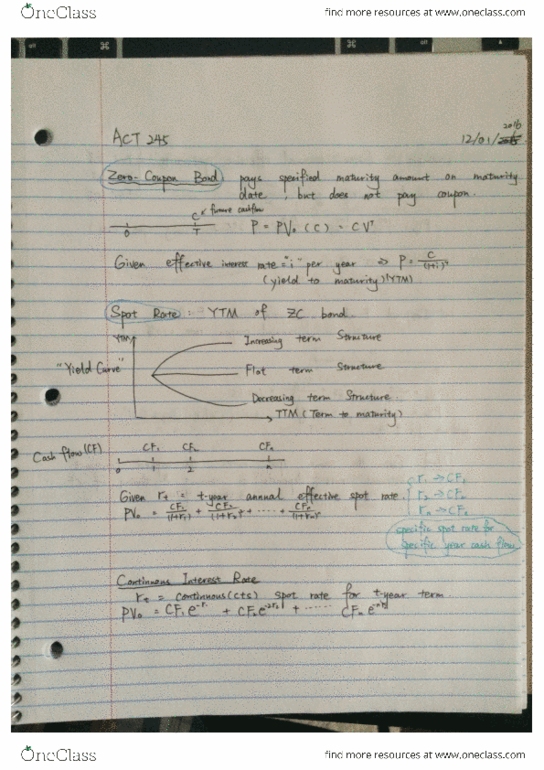 OneClass
find more resources at www.oneclass.com
ACT 245
2016
12/01/
Zero-Coupon Bond pays specified maturity amount on maturity
date, but does not pay coupon.
C ← future cashflow
0 T P = PV₀(C) = CVᵀ
Given effective interest rate = "i" per year ⇒ P = C/(1+i)ᵀ
(yield to maturity)(YTM)
Spot Rate = YTM of ZC bond
YTM
Increasing term structure
"Yield Curve"
Flat term structure
Decreasing term structure
TTM (Term to maturity)
Cash flow (CF) CF₁ CF₂ CFₙ
0 1 2 n
Given rₜ = t-year annual effective spot rate
r₁ → CF₁
r₂ → CF₂
rₙ → CFₙ
PV₀ = CF₁/(1+r₁) + CF₂/(1+r₂)² + ...... + CFₙ/(1+rₙ)ⁿ
specific spot rate for
specific year cash flow
Continuous Interest Rate
rₜ = continuous (cts) spot rate for t-year term
PV₀ = CF₁e^-r₁ + CF₂e^-2r₂ + ...... CFₙe^-nrₙ
OneClass
find more resources at www.oneclass.com